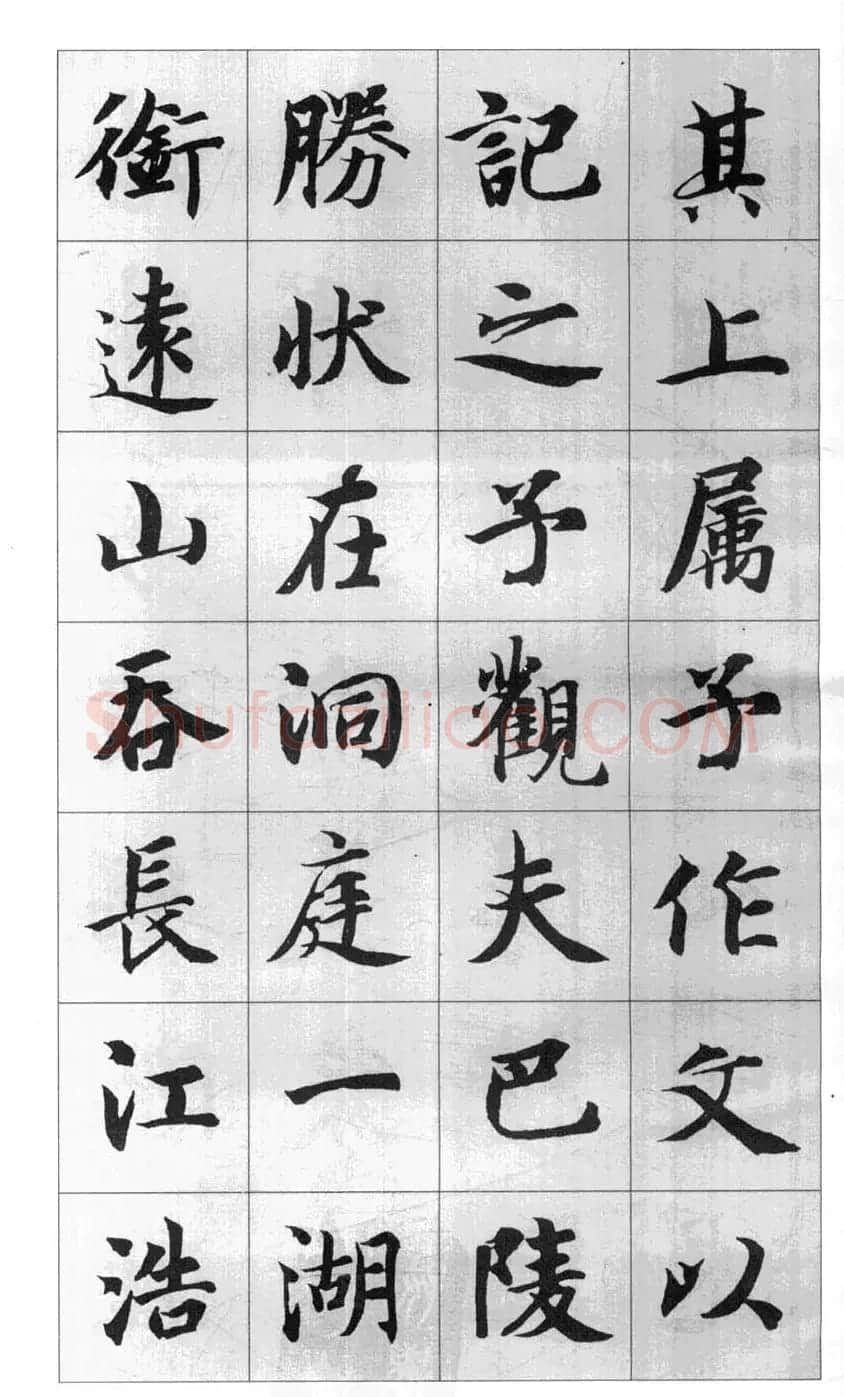 其上属予作文以
記之予觀夫巴陵
勝状在洞庭一湖
銜遠山吞長江浩
Shufaziliao.COM